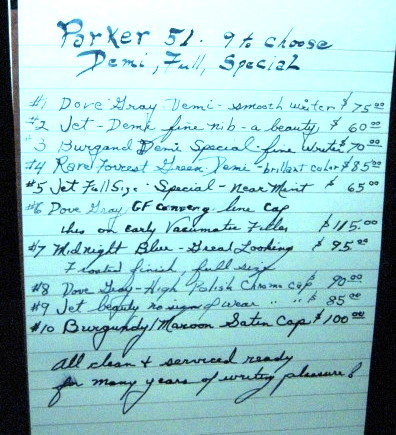 Parker 51. 9 to choose
Demi, Full, Special
#1 Dove Gray Demi - smooth writer $75.00
#2 Jet - Demi fine nib - a beauty, $60.00
#3 Burgand Demi Special - fine Write $70.00
#4 Rare Forrest Green Demi - brillant color $85.00
#5 Jet Full Size Special - Near Mint $65.00
#6 Dove Gray GF converg line cap
this on early Vacumatic Filler $115.00
#7 Midnight Blue - Great Looking $95.00
Frosted finish, full size
#8 Dove Gray - High Polish Chrome cap $90.00
#9 Jet beauty no sign of wear " " $85.00
#10 Burgundy/Maroon Satin Cap $100.00
All clean + serviced ready
for many years of writing pleasure!